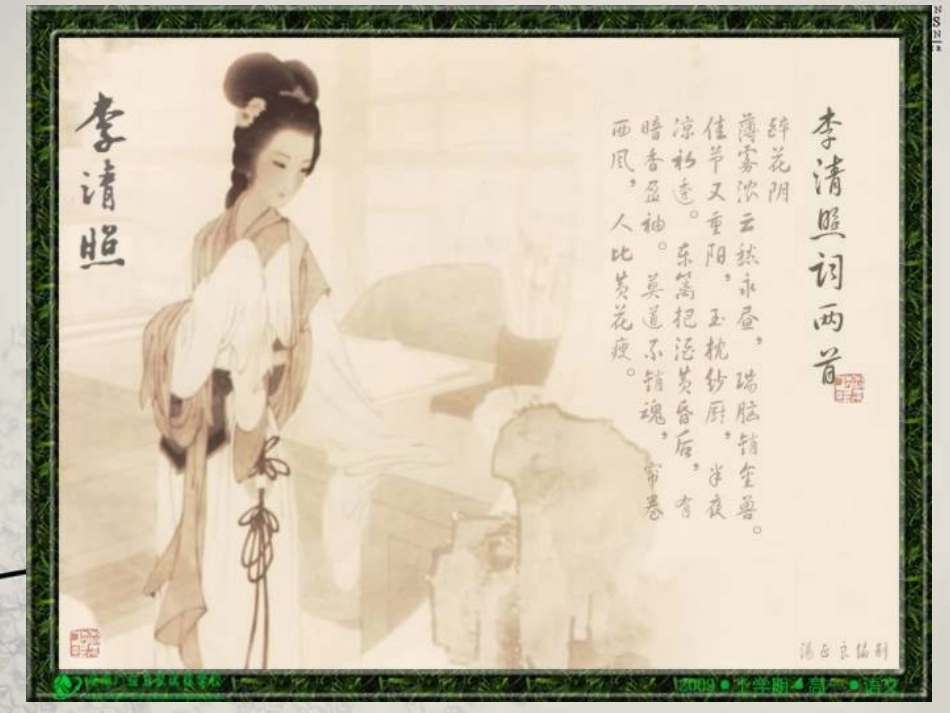 李清照
李清照词两首
醉花阴
薄雾浓云愁永昼，瑞脑销金兽。
佳节又重阳，玉枕纱厨，半夜
凉初透。东篱把酒黄昏后，有
暗香盈袖。莫道不销魂，帘卷
西风，人比黄花瘦。
2009•上学期•高一•语文